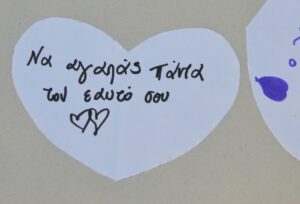 Να αγαπάς πάντα
τον εαυτό σου